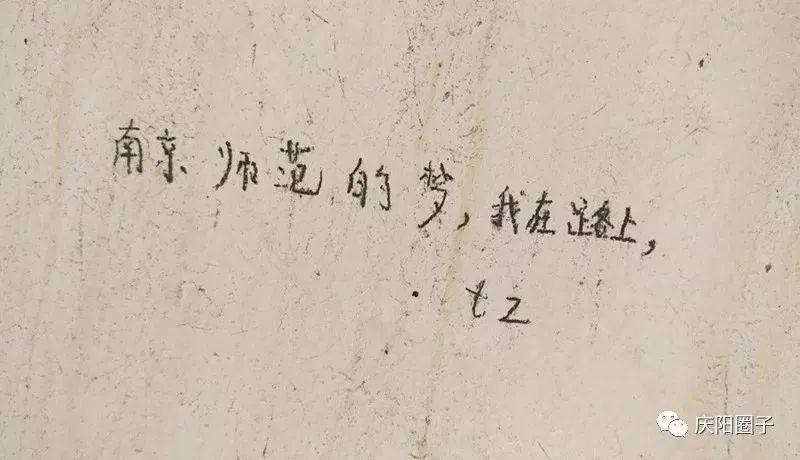 南京师范的梦,我在路上,
tz
庆阳圈子